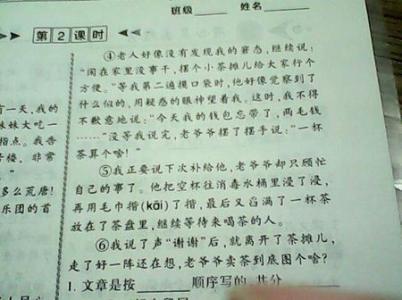 班级 姓名
第2课时
④老人好像没有发现我的窘态,继续说:
“闲在家里没事干,摆个小茶摊儿给大家行个
方便。”等我第二遍摸口袋时,他好像觉察到了
什么似的,用疑惑的眼神望着我。这时,我不得
不歉意地说:“今天我的钱包忘带了,两毛钱
……”没等我说完,老爷爷摆了摆手说:“一杯
茶算个啥!”
⑤我正要说下次补给他,老爷爷却只顾忙
自己的事了。他把空杯往消毒水桶里浸了浸,
再用毛巾揩(kāi)了揩,最后又舀满了一杯茶
放在了茶盘里,继续等待来喝茶的人。
⑥我说了声“谢谢”后,就离开了茶摊儿,
走了好一阵还在想,老爷爷卖茶到底图个啥?
1. 文章是按 顺序写的
有一天,我的
妹妹大吃一
指点。我告
非常
多么荒唐!
乐团的首